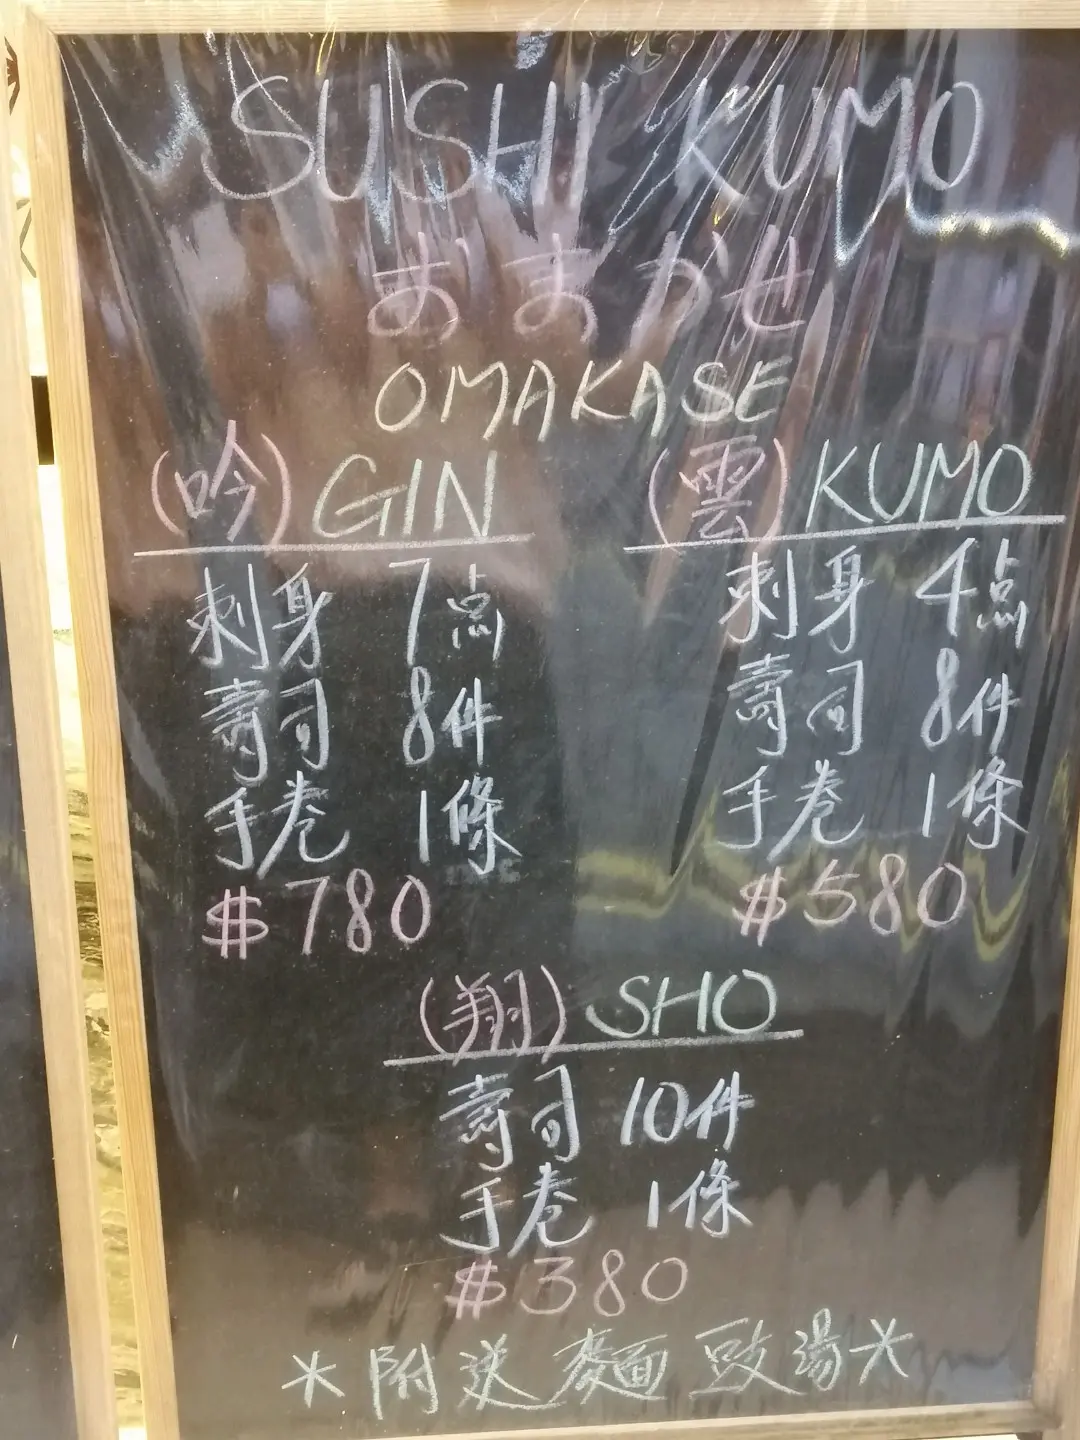 SUSHI KUMO
おまかせ
OMAKASE
(吟) GIN
刺身 7点
壽司 8件
手卷 1條
$780
(雲) KUMO
刺身 4点
壽司 8件
手卷 1條
$580
(翔) SHO
壽司 10件
手卷 1條
$380
*附送 麵 豉湯*